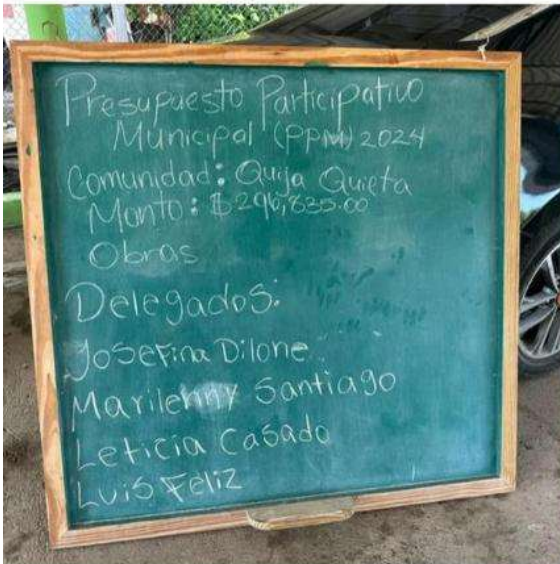 Presupuesto Participativo
Municipal (PPM) 2024
Comunidad: Quija Quieta
Monto: $296,835.00
Obras
Delegados:
Josefina Dilone
Marilenny Santiago
Leticia Casado
Luis Feliz